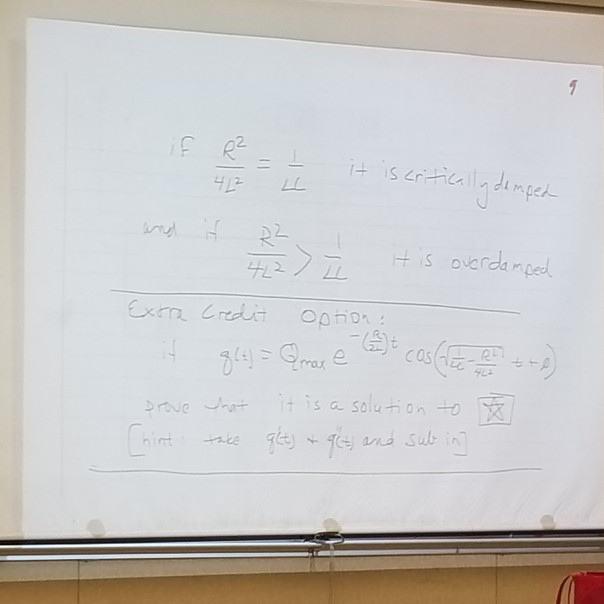 9
if R²/4L² = 1/LC it is critically damped
and if R²/4L² > 1/LC it is overdamped
Extra Credit Option:
if q(t) = Qmax e^-(R/2L)t cos(√(1/LC - R²/4L²) t + ø)
prove that it is a solution to ☆
[hint: take q'(t) + q''(t) and sub in]